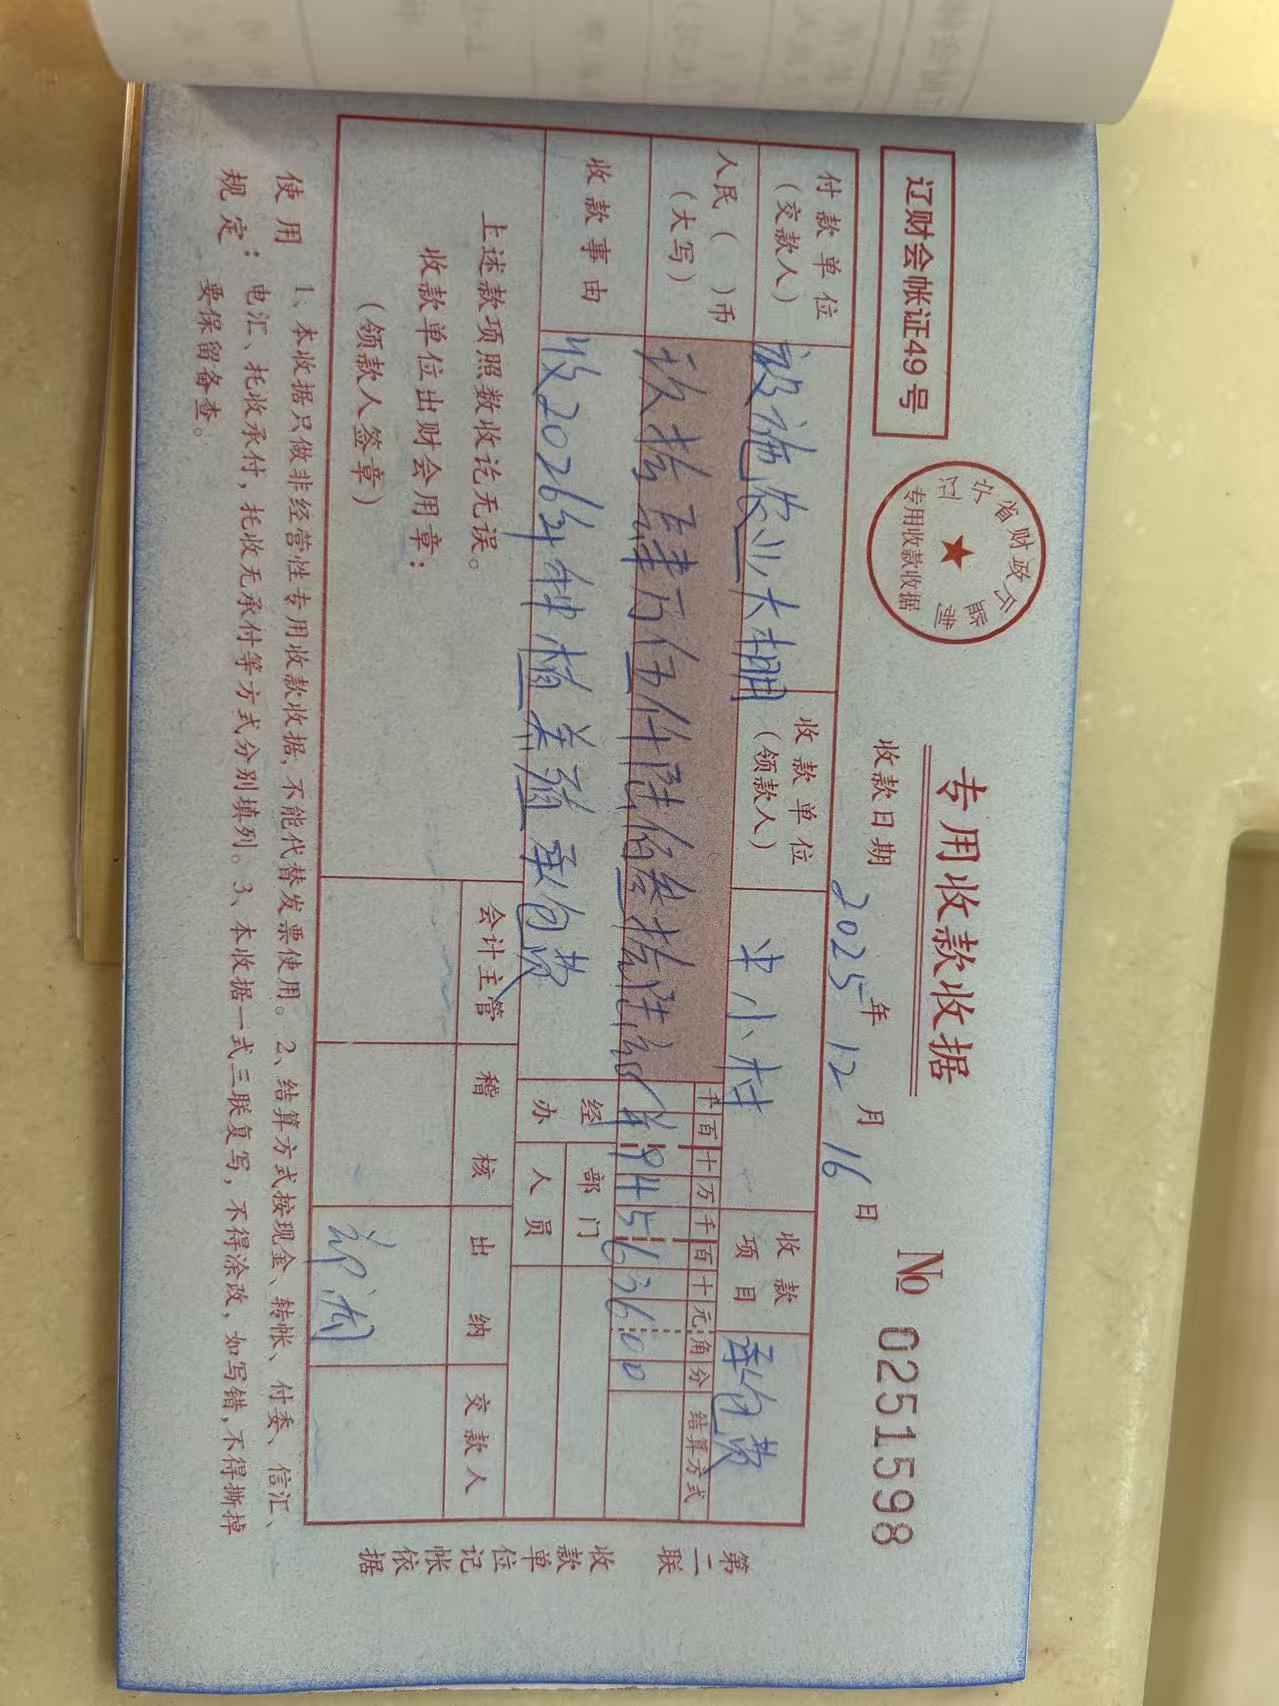 辽财会帐证49号
辽宁省财政厅监制
专用收款收据
专用收款收据
№ 0251598
收款日期 2025年12月16日
付款单位（交款人） 设施农业大棚 收款单位（领款人） 小村 收款项目 承包费
人民（ ）币（大写） 玖拾肆万伍仟陆佰叁拾陆元 千百十万千百十元角分 结算方式
¥94563600
收款事由 收2026年种植养殖承包费 经办 部门
人员
上述款项照数收讫无误。
收款单位出财会用章：
（领款人签章）
会计主管 稽核 出纳 交款人
使用规定： 1、本收据只做非经营性专用收款收据，不能代替发票使用。2、结算方式按现金、转帐、付委、信汇、
电汇、托收承付，托收无承付等方式分别填列。3、本收据一式三联复写，不得涂改，如写错，不得撕掉
要保留备查。
第二联 收款单位记帐依据